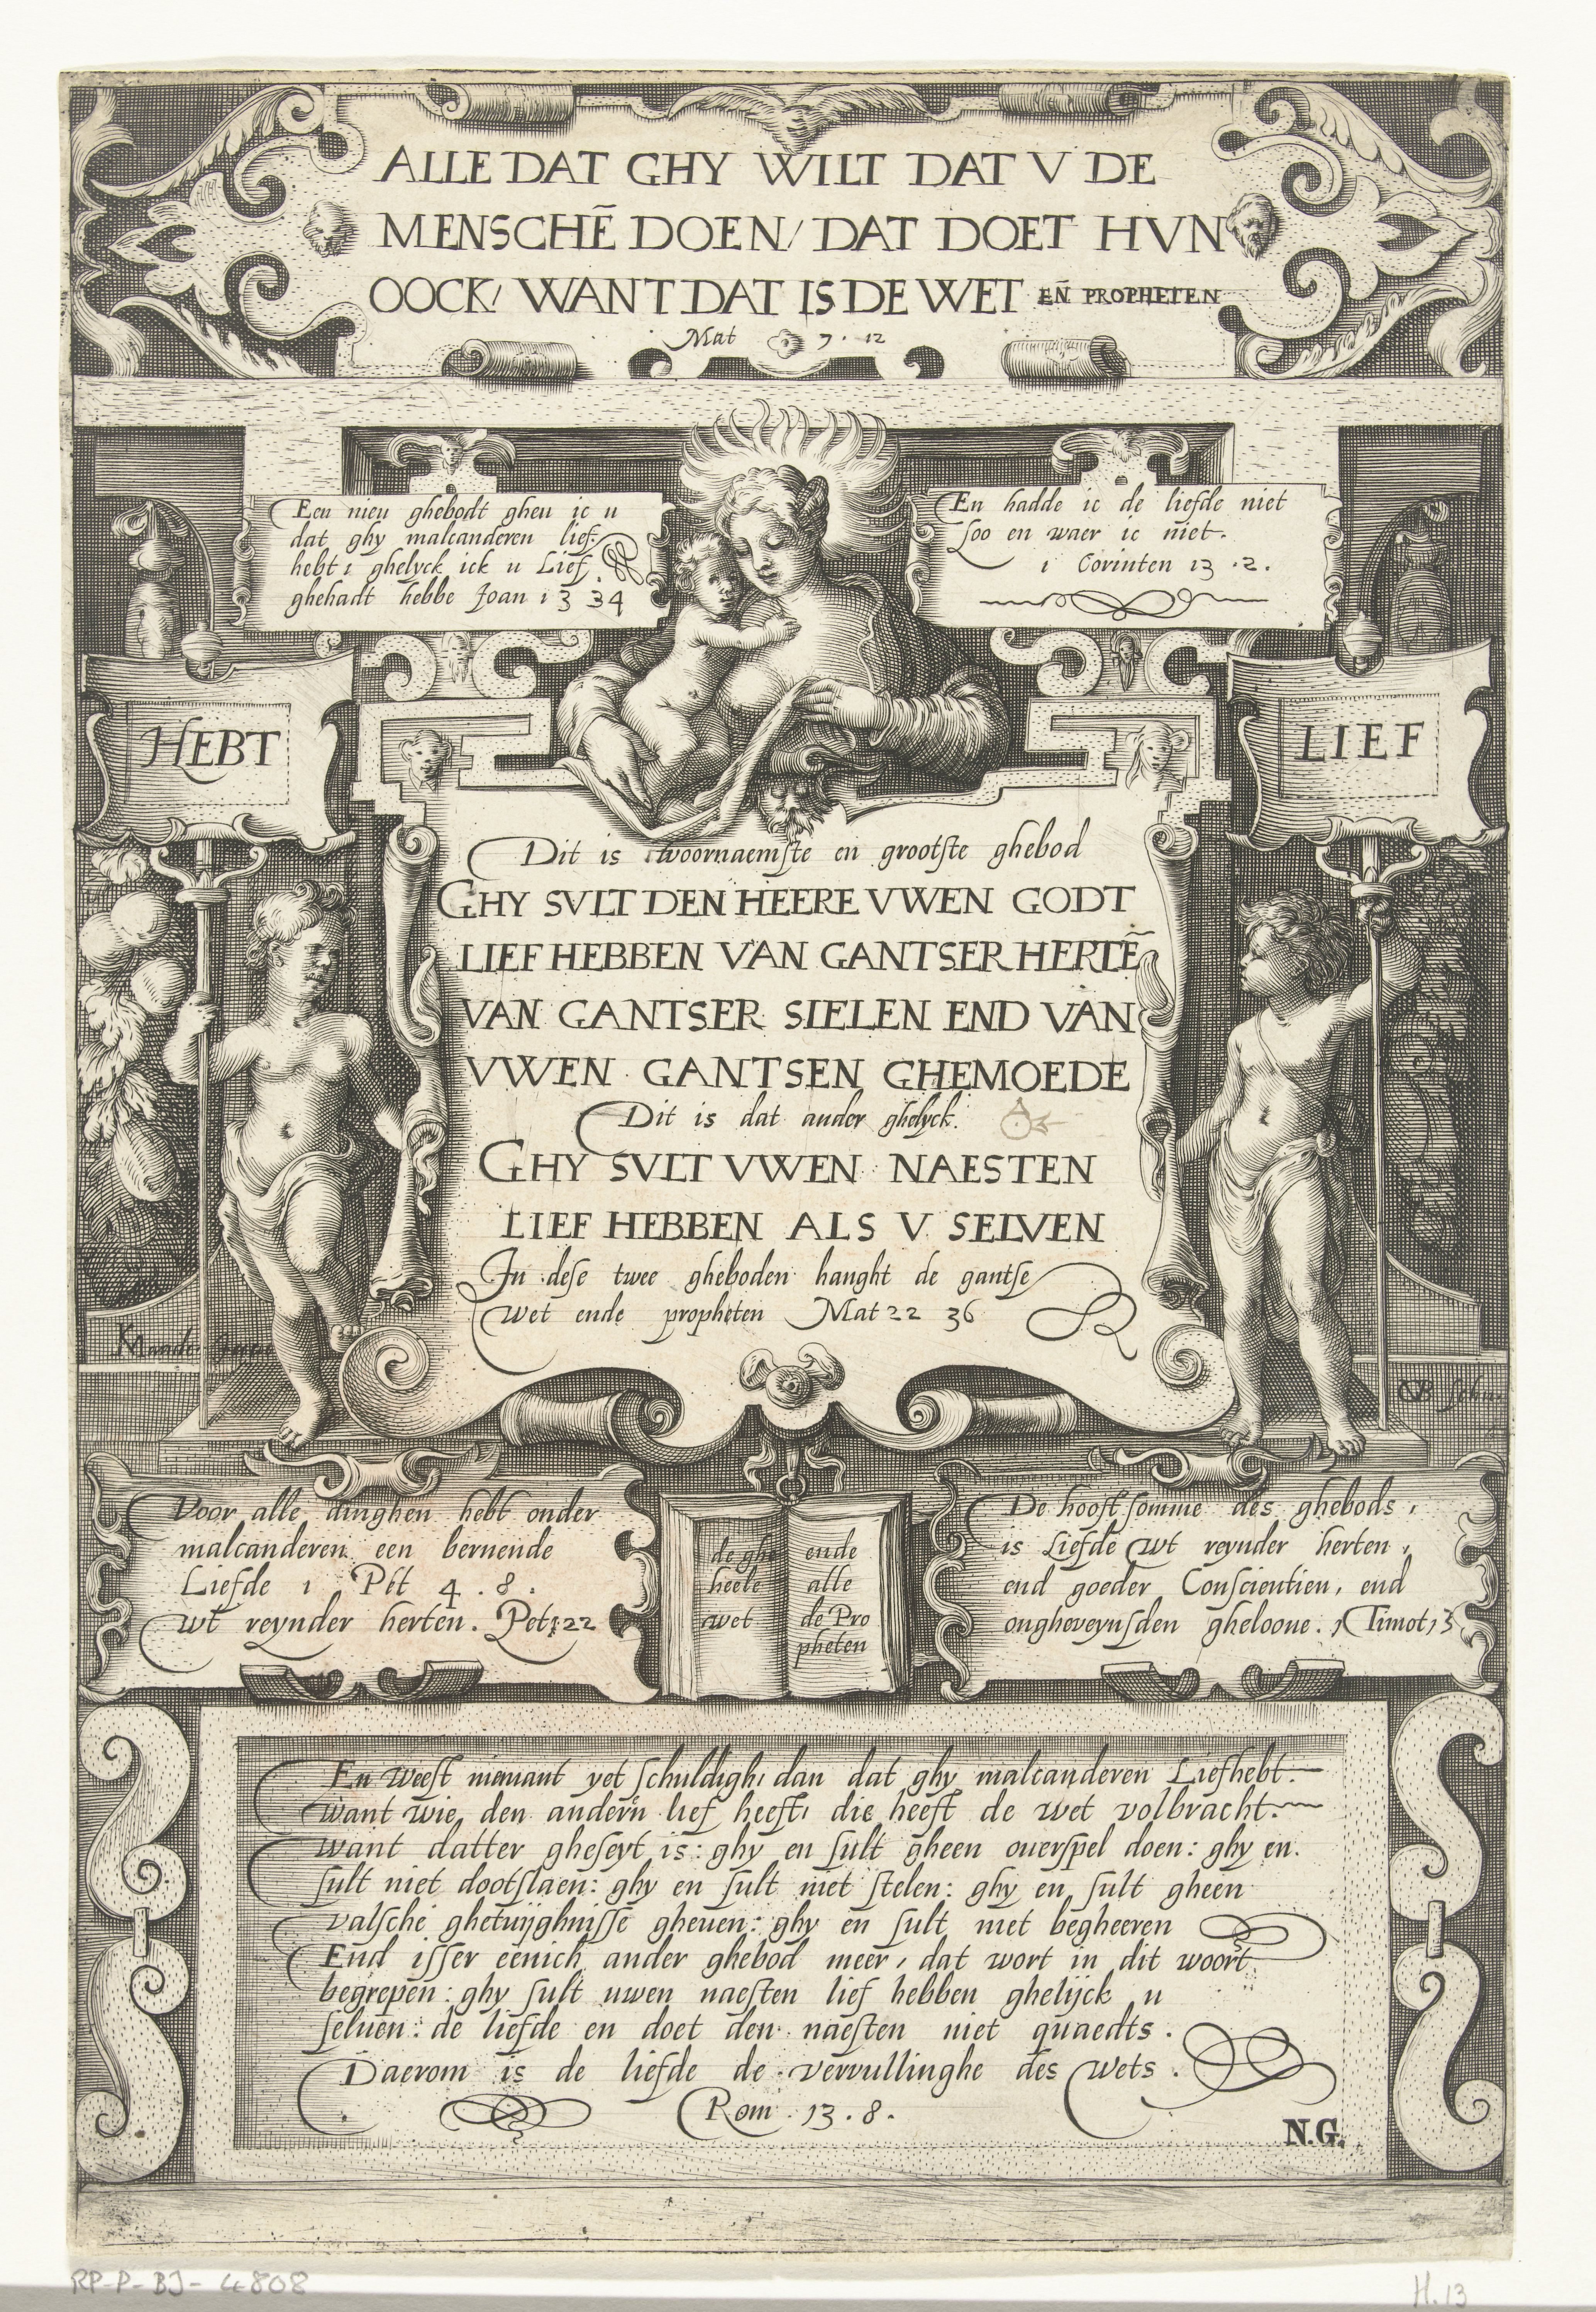 ALLE DAT GHY WILT DAT V DE
MENSCHĒ DOEN/ DAT DOET HVN
OOCK/ WANT DAT IS DE WET EÑ PROPHETEN
Mat 7. 12
Een nieu ghebodt gheu ic u
dat ghy malcanderen lief
hebt ghelyck ick u Lief
ghehadt hebbe Joan 13 34
En hadde ic de liefde niet
soo en waer ic niet.
1 Corinten 13 .2.
HEBT
LIEF
Dit is tvoornaemste en grootste ghebod
GHY SVLT DEN HEERE VWEN GODT
LIEF HEBBEN VAN GANTSER HERTĒ
VAN GANTSER SIELEN END VAN
VWEN GANTSEN GHEMOEDE
Dit is dat ander ghelyck.
GHY SVLT VWEN NAESTEN
LIEF HEBBEN ALS V SELVEN
In dese twee gheboden hanght de gantse
Wet ende propheten Mat 22 36
KMander
CVB
Voor alle dinghen hebt onder
malcanderen een bernende
Liefde 1 Pet 4 . 8 .
wt reynder herten. Pet 1 22
de ghe
heele
wet
ende
alle
de Pro
pheten
De hooft somme des ghebods,
is Liefde wt reynder herten,
end goeder Conscientien, end
ongheveynsden gheloove. 1 Timot 1 5
En weest niemant yet schuldigh, dan dat ghy malcanderen Liefhebt.
want wie den andern lief heeft, die heeft de wet volbracht.
want datter gheseyt is: ghy en sult gheen overspel doen: ghy en.
sult niet dootslaen: ghy en sult niet stelen: ghy en sult gheen
valsche ghetuijghnisse gheuen: ghy en sult niet begheeren
End isser eenich ander ghebod meer, dat wort in dit woort
begrepen: ghy sult uwen naesten lief hebben ghelijck u
seluen: de liefde en doet den naesten niet quaedts.
Daerom is de liefde de vervullinghe des Wets.
Rom 13 . 8 .
N.G.
RP-P-BJ-4808
H.13